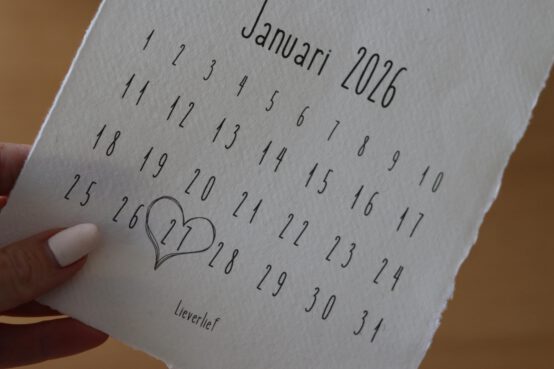 Januari 2026
1 2 3 4 5 6 7 8 9 10
11 12 13 14 15 16 17
18 19 20 21 22 23 24
25 26 27 28 29 30 31
Lieverlief